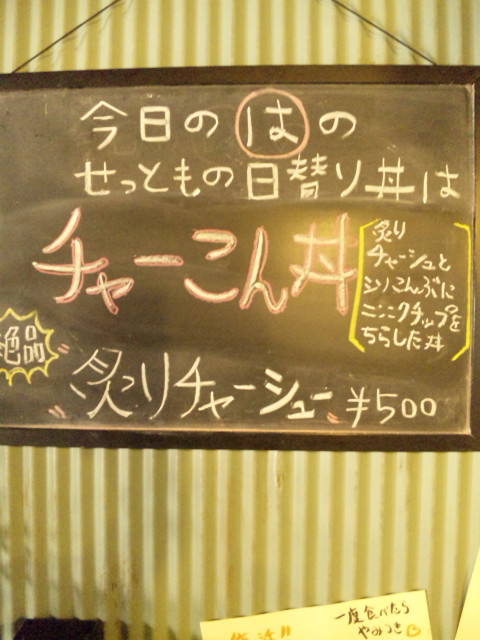 今日の は の
せっともの日替り丼は
チャーこん丼
炙り
チャーシュと
シソこんぶに
ニンニクチップを
ちらした丼
絶品
炙りチャーシュー ¥500
一度食べたら
やみつき